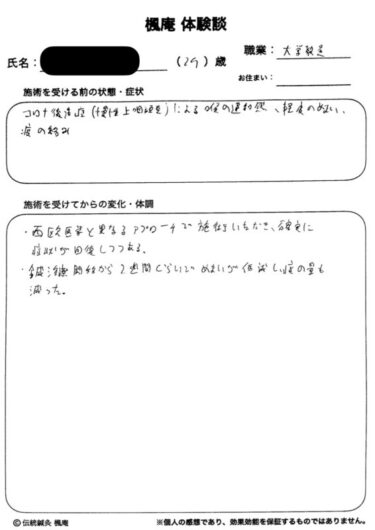 楓庵 体験談
職業： 大学教員
氏名： （29）歳
お住まい：
施術を受ける前の状態・症状
コロナ後遺症（慢性上咽頭炎）による喉の違和感、軽度のめまい、
痰の絡み
施術を受けてからの変化・体調
・西欧医学と異なるアプローチで施術していただき、確実に
症状が回復しつつある。
・鍼治療開始から2週間くらいでめまいが低減し、痰の量も
減った。
© 伝統鍼灸 楓庵
※個人の感想であり、効果効能を保証するものではありません。